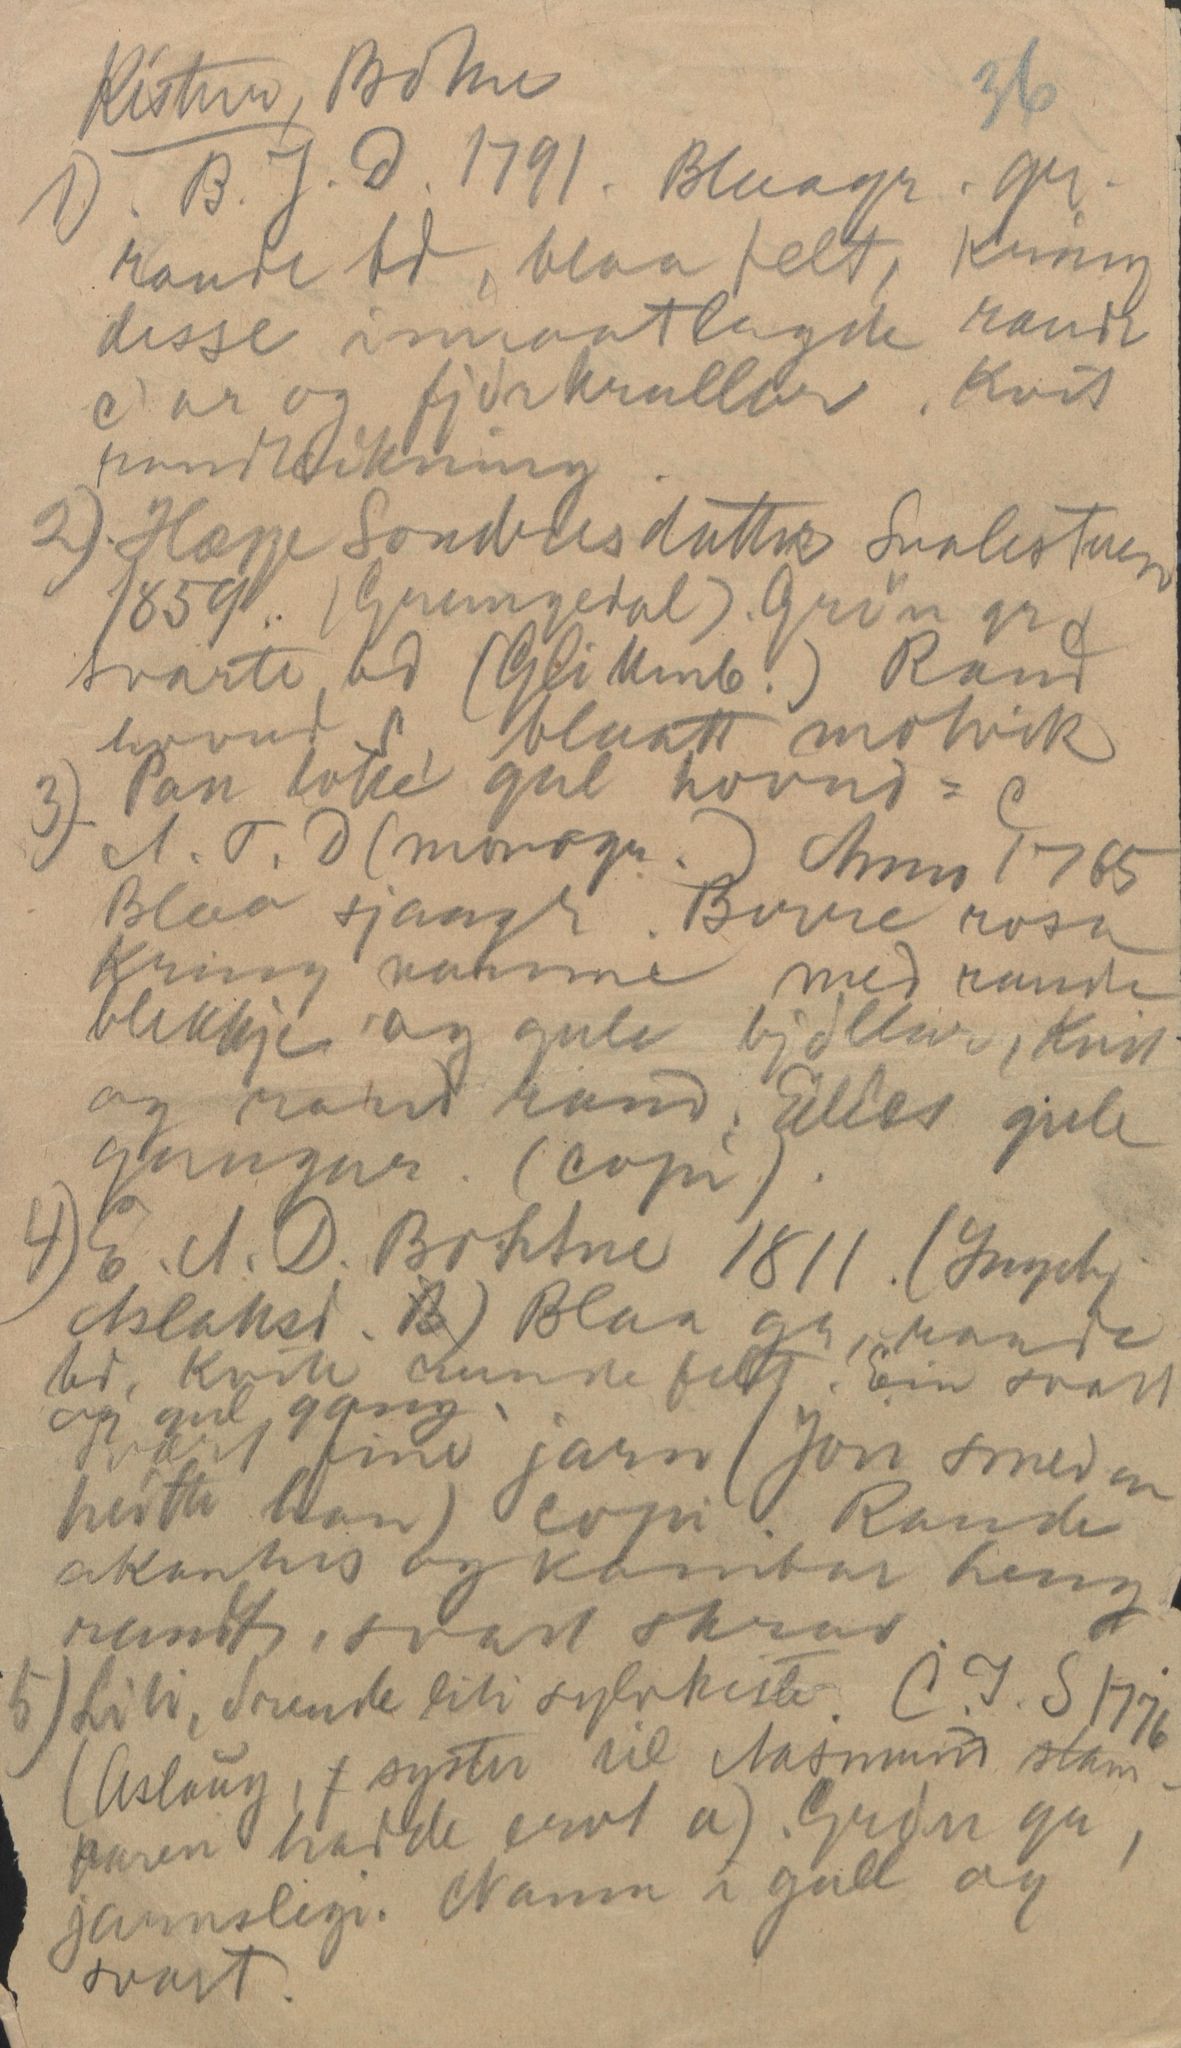 Kistur, Böhne
36
1). B. J. D. 1791. Blaagr. gr.
raude bd, blaa felt, kring
disse inmaatlagde raude
c ar og fjörkrullur. Kvit
randteikning.
2). Hæge Sondresdatter Svalestuen
1859. (Grungedal). Grön gr
svarte bd (Glikmb.) Raud
hovud blaatt
3) gul hovud = C
A. T. D (monogr.) Anno 1765
Blaa sjaagr. Bovre rosa
Kring namne med raude
blekkje og gule bjöllur, kvit
og raud rand. Elles gule
gangar. (copi).
4) E. A. D.Böhne 1811. (Ingebj
Aslaksd. B) Blaa gr, raude
bd, kvite runde felt. Ein svart
og gul gang.
Svært fine jarn (Jon smed
heitte han) copi. Raude
akantus og kambar heng
rundt, svart skrav.
5) Liti, liti sylvkiste. C. J. S 1776
(Aslaug, syster til Aasmund stam-
paren hadde ervt a). Grön gr,
jarnslegi. Namn i gull og
svart.